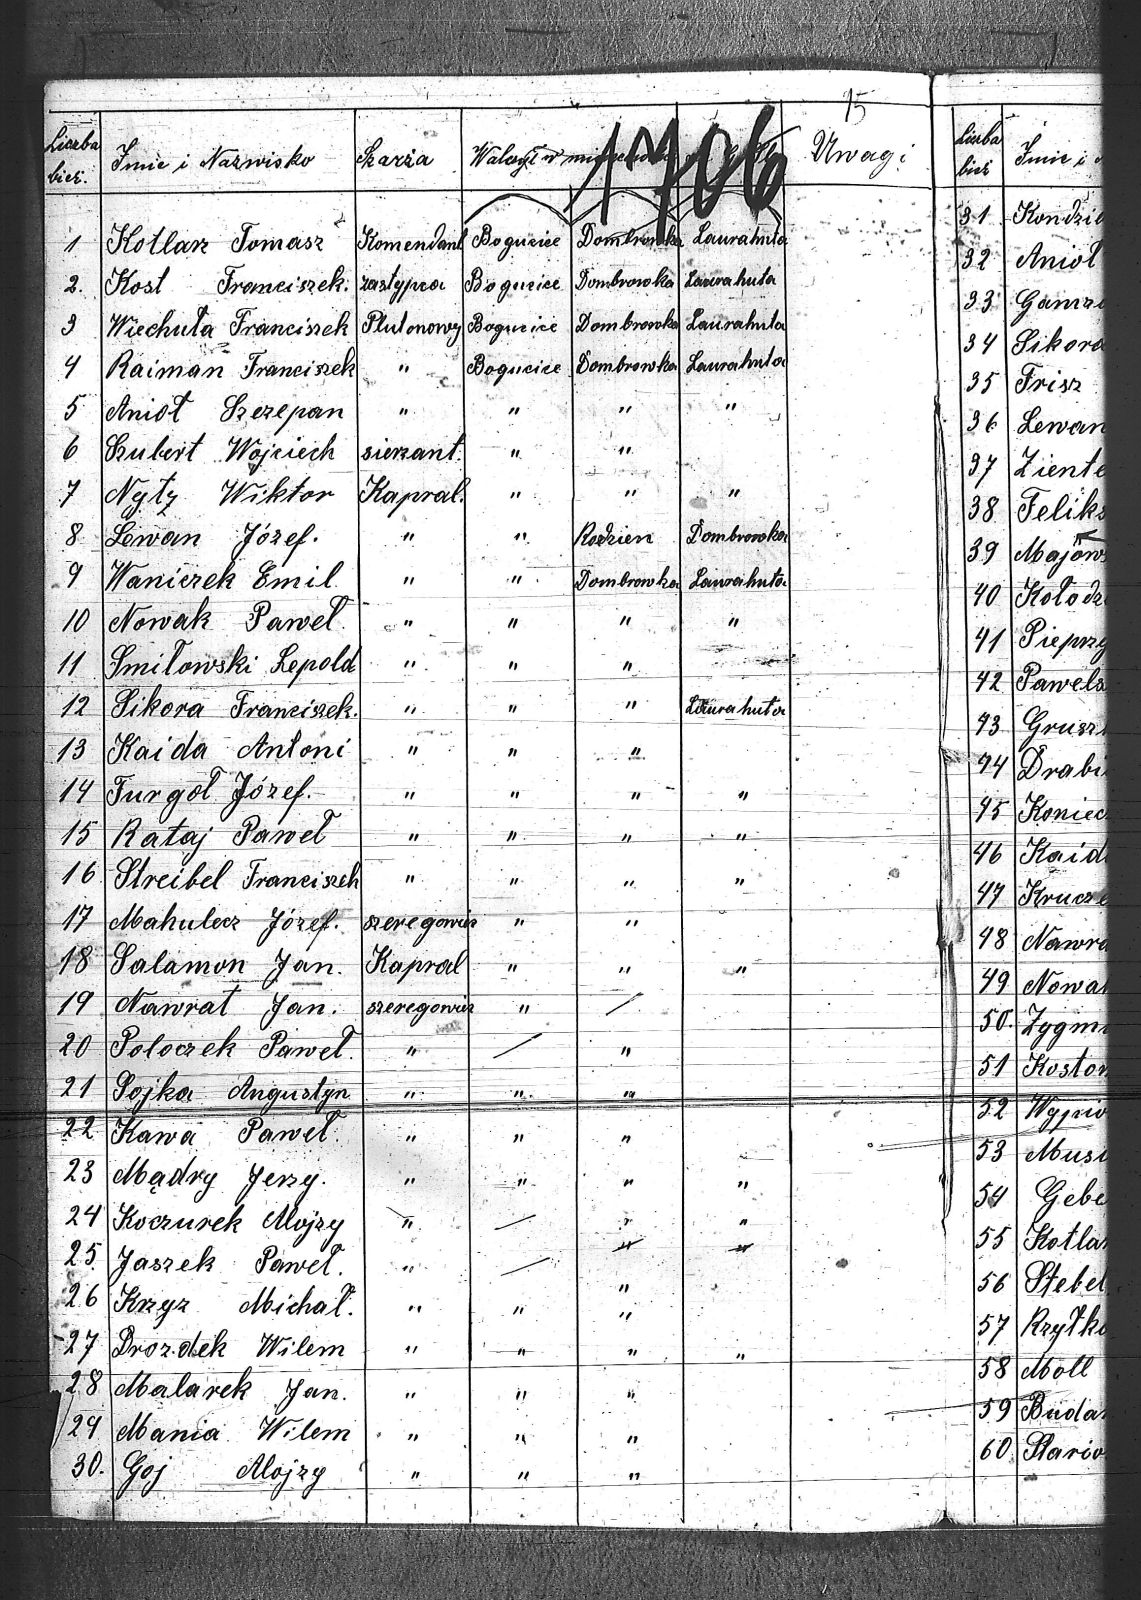 15
1706
Liczba bież. Imię i Nazwisko Szarża Walczył w Uwagi
1 Kotlarz Tomasz Komendant Bogucice Dombrowka Laurahuta
2. Kost Franciszek. zastypca Bogucice Dombrowka Laurahuta
3 Wiechuła Franciszek Plutonowy Bogucice Dombrowka Laurahuta
4 Raiman Franciszek " Bogucice Dombrowka Laurahuta
5 Anioł Szczepan " " " "
6 Szubert Wojciech sierzant. " "
7 Nyty Wiktor Kapral. " " "
8 Lewan Józef. " " Rozzien Dombrowka
9 Waniczek Emil " " Dombrowka Laurahuta
10 Nowak Paweł " " " "
11 Smiłowski Lepold " " "
12 Sikora Franciszek. " " " Laurahuta
13 Kaida Antoni " " "
14 Furgoł Józef. " " " "
15 Rataj Paweł " " " "
16 Streibel Franciszek " " " "
17 Mahulecz Józef. szeregowiec " "
18 Salamon Jan. Kapral " " "
19 Nawrat Jan. szeregowiec " /
20 Poloczek Paweł. " / "
21 Sojka Augustyn " " "
22 Kawa Paweł. " " "
23 Mądry Jerzy. " " " "
24 Koczurek Alojzy " / " "
25 Jaszek Paweł. " / " "
26 Krzyz Michał. " " "
27 Drozdek Wilem " " " "
28 Malarek Jan. " " "
29 Mania Wilem " " "
30. Goj Alojzy " " "
Liczba bież Imię i
31 Kondzie
32 Anioł
33 Gamz
34 Sikora
35 Frisz
36 Lewan
37 Ziente
38 Feliks
39 Majows
40 Kołodz
41 Pieprzy
42 Pawels
43 Grusz
44 Drabi
45 Koniecz
46 Kaid
47 Krucze
48 Nawra
49 Nowak
50. Zygm
51 Kostor
52 Wypio
53 Musi
54 Gebe
55 Kotlar
56 Stebel
57 Rzytk
58 Moll
59 Budar
60. Stario